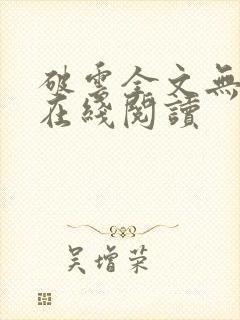 破雲全文無
在綫閱讀
吳增荣